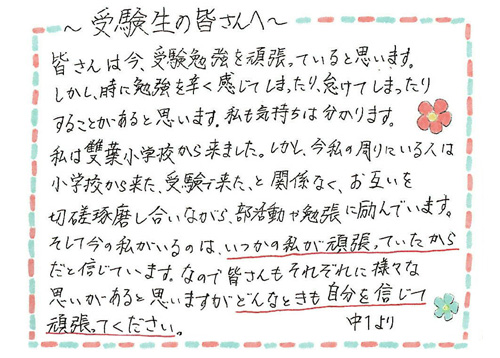 ～受験生の皆さんへ～
皆さんは今、受験勉強を頑張っていると思います。
しかし、時に勉強を辛く感じてしまったり、怠けてしまったり
することがあると思います。私も気持ちは分かります。
私は雙葉小学校から来ました。しかし、今私の周りにいる人は
小学校から来た、受験で来た、と関係なく、お互いを
切磋琢磨し合いながら、部活動や勉強に励んでいます。
そして今の私がいるのは、いつかの私が頑張っていたから
だと信じています。なので皆さんもそれぞれに様々な
思いがあると思いますがどんなときも自分を信じて
頑張ってください。 中1より